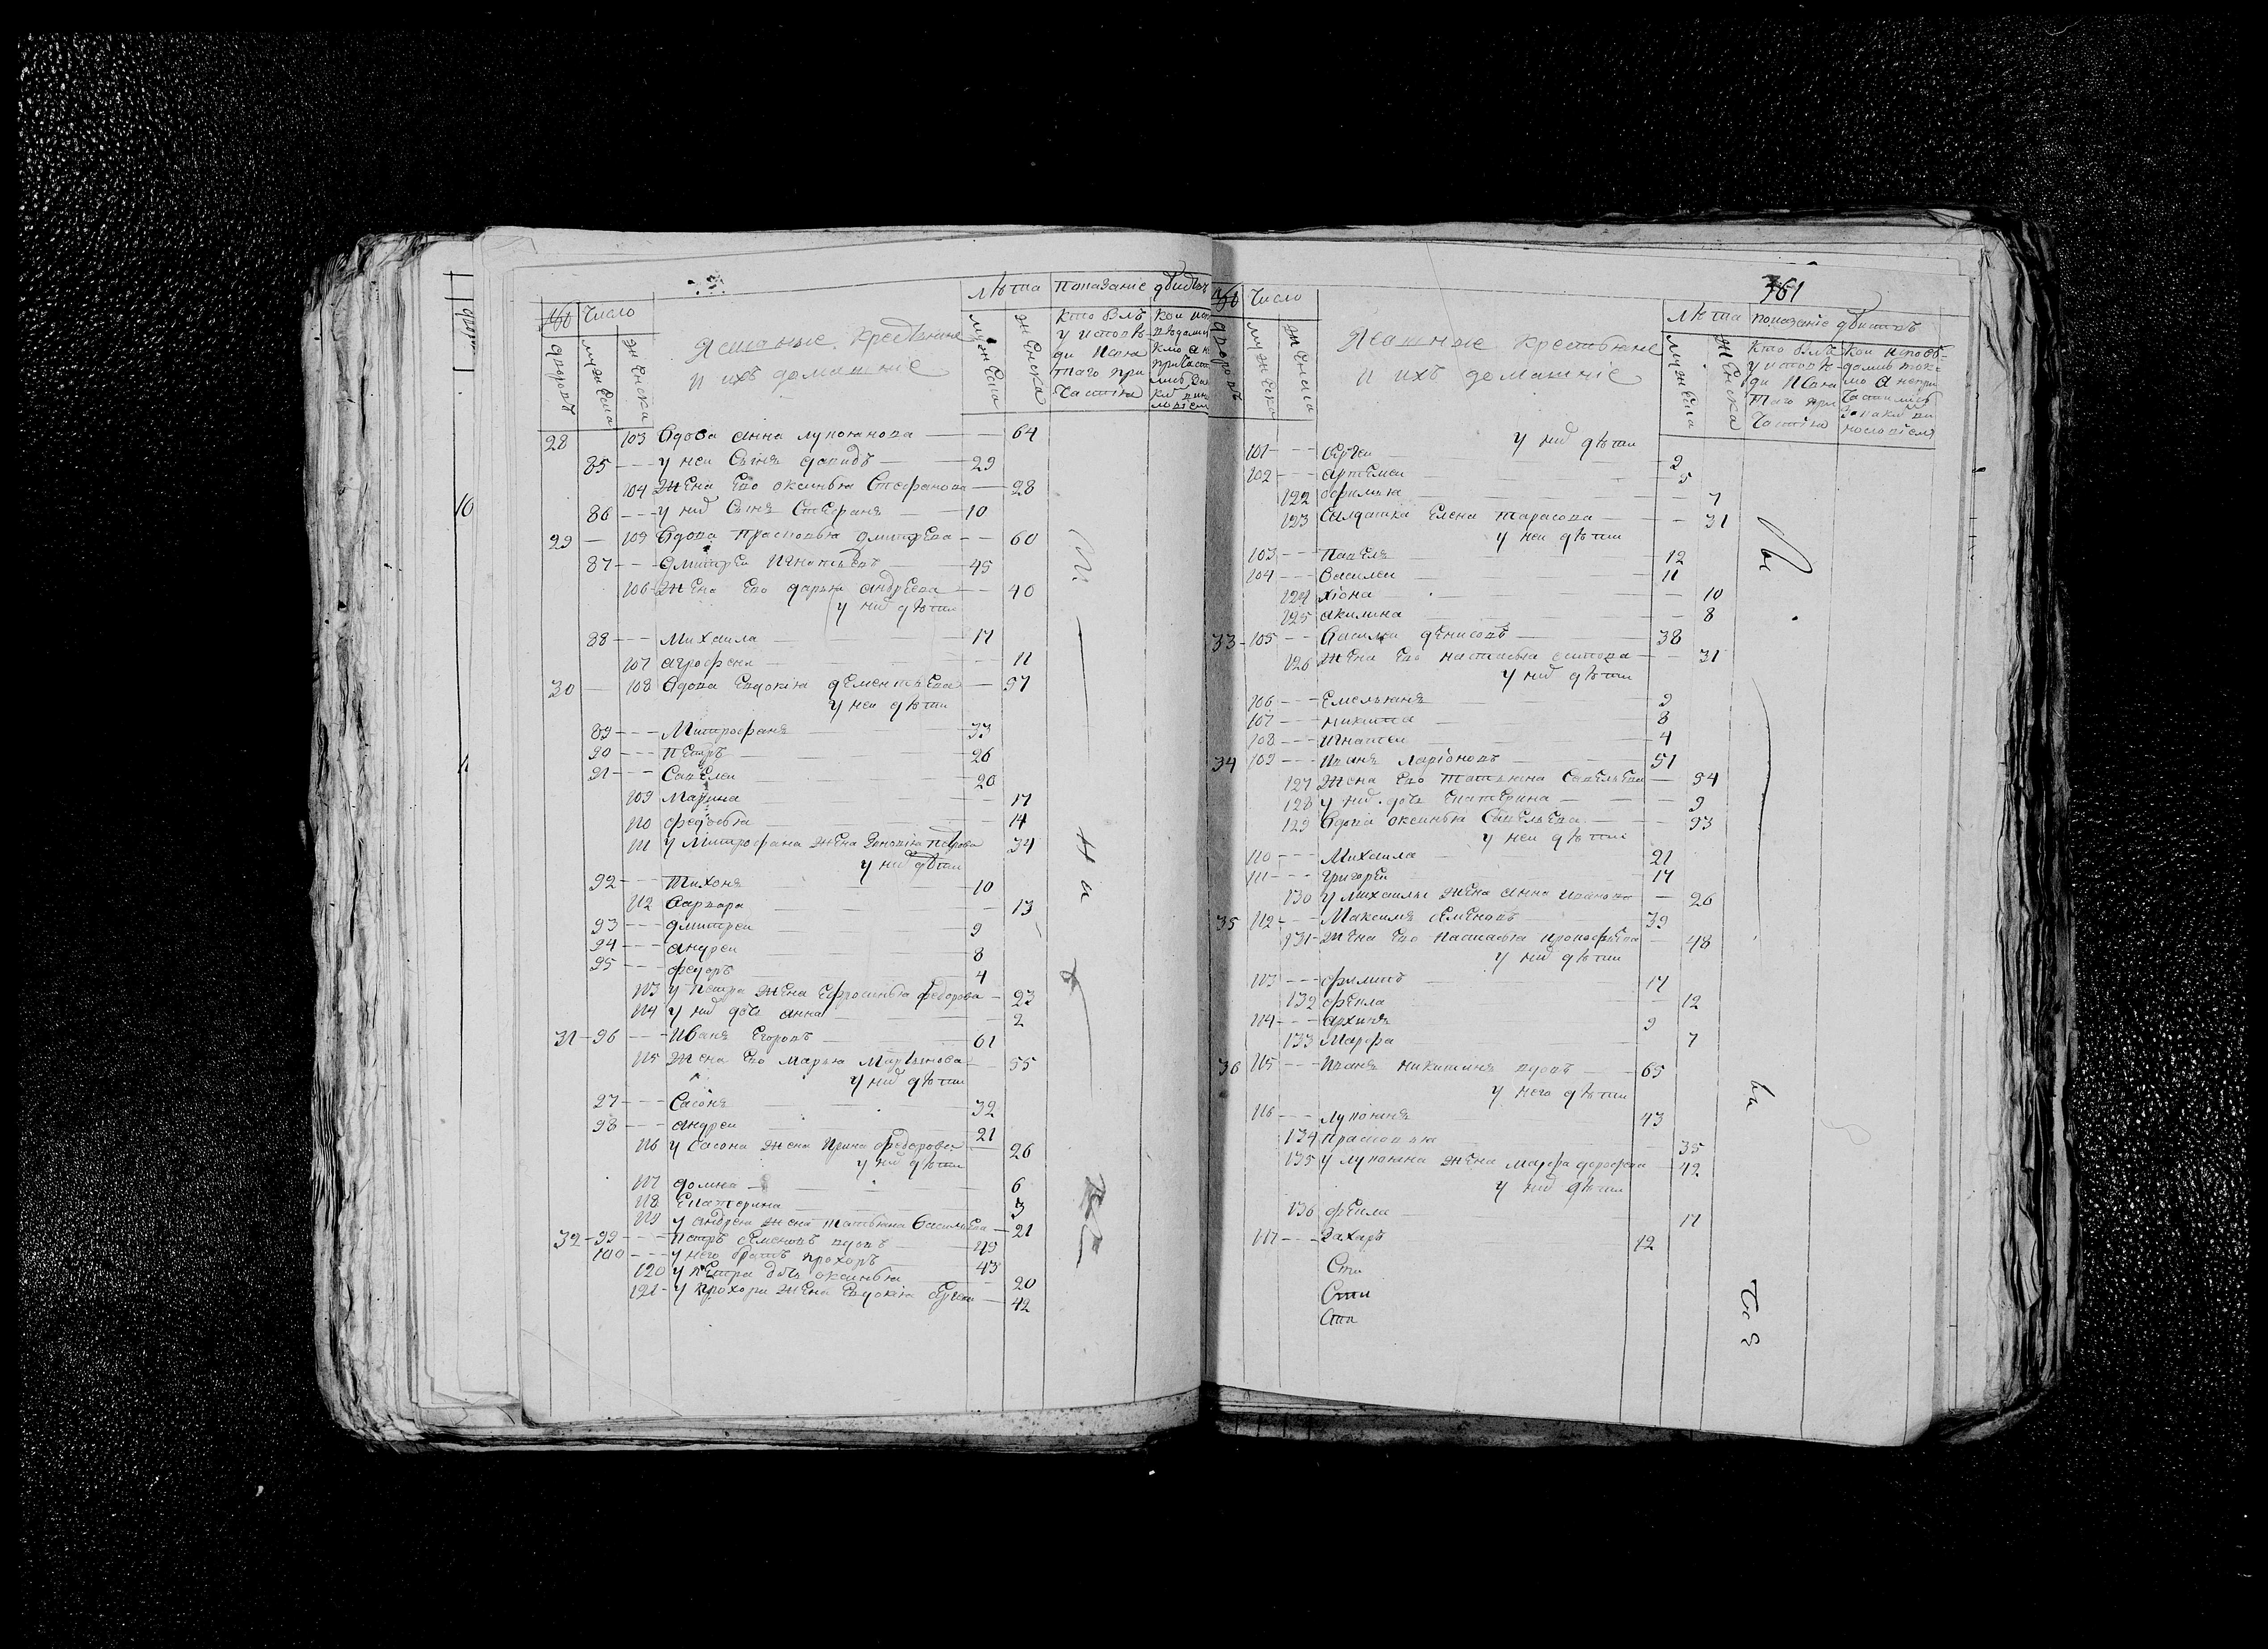 Число
дворовъ
мужеска
женска
Ясашные крестьяне
и ихъ домашніе
Лѣта
мужеска
женска
Показаніе
Кто былъ
у исповѣ
ди и свя
таго при
частія
28 103 вдова анна лукоянова 64
85 у неи сынъ давидъ 29
104 жена ево оксинья стефанова 28
86 у них сынъ стефанъ 10
29 105 вдова прасковья дмитрева 60
87 дмитреи игнатьевъ 45
106 жена ево дарья андреева 40
у них дѣти
88 михаила 17
107 агрофена 11
30 108 вдова евдокія дементьева 57
у неи дѣти
89 митрофанъ 33
90 петръ 26
91 савелеи 20
109 марина 17
110 федосья 14
111 у митрофана жена зиновія петрова 34
у них дѣти
92 тихонъ 10
112 варвара 13
93 дмитреи 9
94 андреи 8
95 федоръ 4
113 у петра жена ефросинья федорова 23
114 у них дочь анна 2
31 96 иванъ егоровъ 61
115 жена ево марья мартынова 55
у них дѣти
97 сасонъ 32
98 андреи 21
116 у сасона жена ирина федорова 26
у них дѣти
117 домна 6
118 екатерина 3
119 у андрея жена татьяна васильева 21
32 99 петръ семеновъ вдовъ 49
100 у него братъ прохоръ 43
120 у петра дочь оксинья 20
121 у прохора жена евдокія 42
361
Число
дворовъ
мужеска
женска
Ясашные крестьяне
и ихъ домашніе
Лѣта
мужеска
женска
показаніе
Кто былъ
у исповѣ
ди и свя
таго при
частія
у них дѣти
101 сергеи 2
102 артемеи 5
122 офимья 7
123 салдатка елена тарасова 31
у неи дѣти
103 павелъ 12
104 василеи 11
124 хіона 10
125 акилина 8
33 105 василеи денисовъ 38
126 жена ево настасья осипова 31
у них дѣти
106 емельянъ 9
107 никита 8
108 игнатеи 4
34 109 иванъ ларіоновъ 51
127 жена ево татьяна савельева 54
128 у них дочь екатерина 9
129 вдова оксинья савельева 53
у неи дѣти
110 михаила 21
111 григореи 17
130 у михаилы жена анна иванова 26
35 112 максимъ семеновъ 39
131 жена ево настасья прокофьева 48
у них дѣти
113 филипъ 17
132 фекла 12
114 архипъ 9
133 марфа 7
36 115 иванъ никитинъ вдовъ 65
у него дѣти
116 лукоянъ 43
134 прасковья 35
135 у лукояна жена марфа дорофеева 42
у них дѣти
136 фекла 17
117 захаръ 12